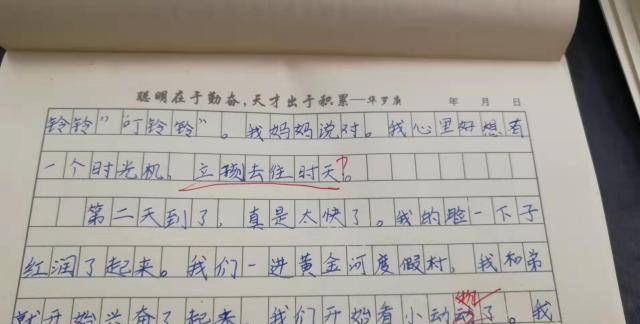 聪明在于勤奋，天才出于积累—华罗庚 年 月 日
铃铃” “叮铃铃”。我妈妈说对。我心里好想有
一个时光机，立 去住时天?。
第二天到了，真是太快了。我的脸一下子
红润了起来。我们一进黄金河度假村，我和弟
物
就开始兴奋了起来，我们开始看小动动了。我